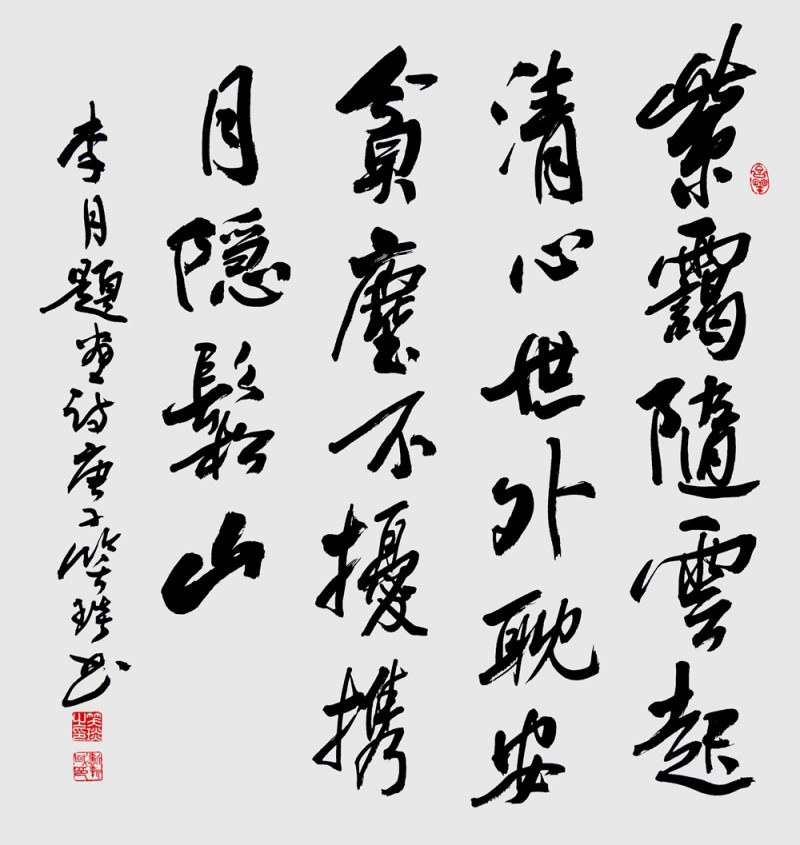 紫靄隨雲起
清心世外耽安
貧塵不擾携
月隱鬆山
李月題畫詩庚子書